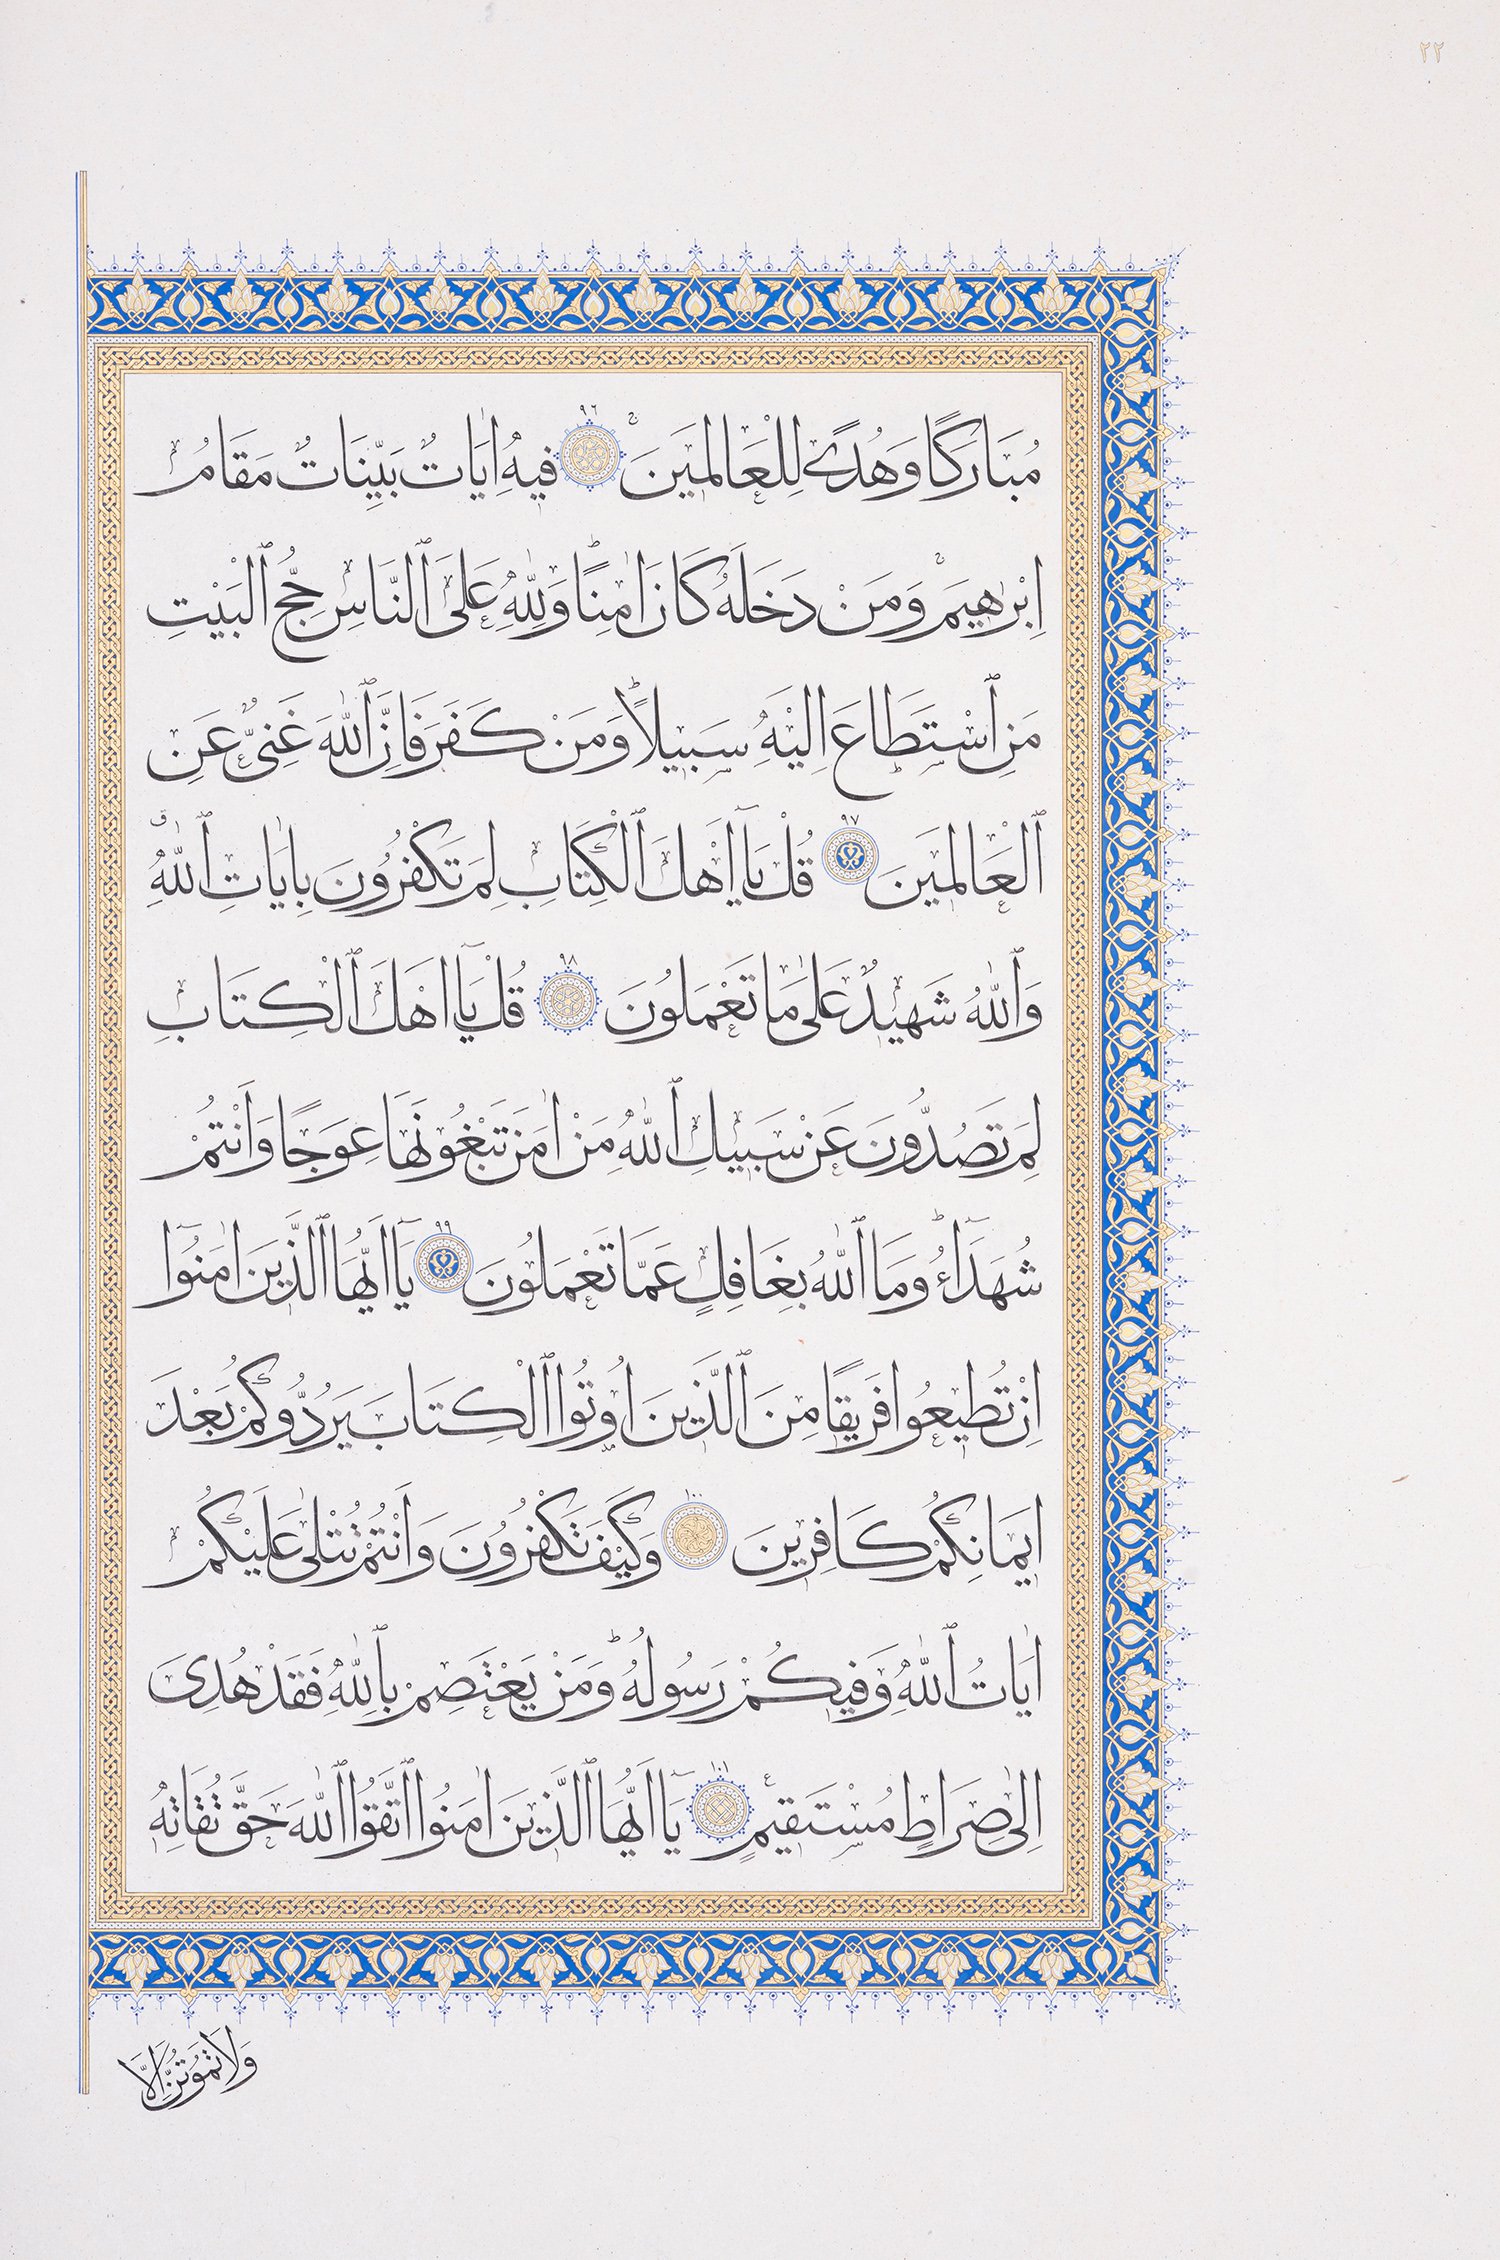 ٢٢
مُبَارَكًا وَهُدًى لِلْعَالَمِينَ ٩٦ فِيهِ اٰيَاتٌ بَيِّنَاتٌ مَقَامُ
اِبْرٰهِيمَ وَمَنْ دَخَلَهُ كَانَ اٰمِنًا وَلِلّٰهِ عَلَى ٱلنَّاسِ حِجُّ ٱلْبَيْتِ
مَنِ ٱسْتَطَاعَ اِلَيْهِ سَبِيلًا وَمَنْ كَفَرَ فَاِنَّ ٱللّٰهَ غَنِىٌّ عَنِ
ٱلْعَالَمِينَ ٩٧ قُلْ يَٓا اَهْلَ ٱلْكِتَابِ لِمَ تَكْفُرُونَ بِاٰيَاتِ ٱللّٰهِ
وَٱللّٰهُ شَهِيدٌ عَلٰى مَا تَعْمَلُونَ ٩٨ قُلْ يَٓا اَهْلَ ٱلْكِتَابِ
لِمَ تَصُدُّونَ عَنْ سَبِيلِ ٱللّٰهِ مَنْ اٰمَنَ تَبْغُونَهَا عِوَجًا وَاَنْتُمْ
شُهَدَٓاءُ وَمَا ٱللّٰهُ بِغَافِلٍ عَمَّا تَعْمَلُونَ ٩٩ يَٓا اَيُّهَا ٱلَّذِينَ اٰمَنُٓوا
اِنْ تُطِيعُوا فَرِيقًا مِنَ ٱلَّذِينَ اُوتُوا ٱلْكِتَابَ يَرُدُّوكُمْ بَعْدَ
اِيمَانِكُمْ كَافِرِينَ ١٠٠ وَكَيْفَ تَكْفُرُونَ وَاَنْتُمْ تُتْلٰى عَلَيْكُمْ
اٰيَاتُ ٱللّٰهِ وَفِيكُمْ رَسُولُهُ وَمَنْ يَعْتَصِمْ بِٱللّٰهِ فَقَدْ هُدِىَ
اِلٰى صِرَاطٍ مُسْتَقِيمٍ ١٠١ يَٓا اَيُّهَا ٱلَّذِينَ اٰمَنُوا ٱتَّقُوا ٱللّٰهَ حَقَّ تُقَاتِهِ
وَلَا تَمُوتُنَّ اِلَّا